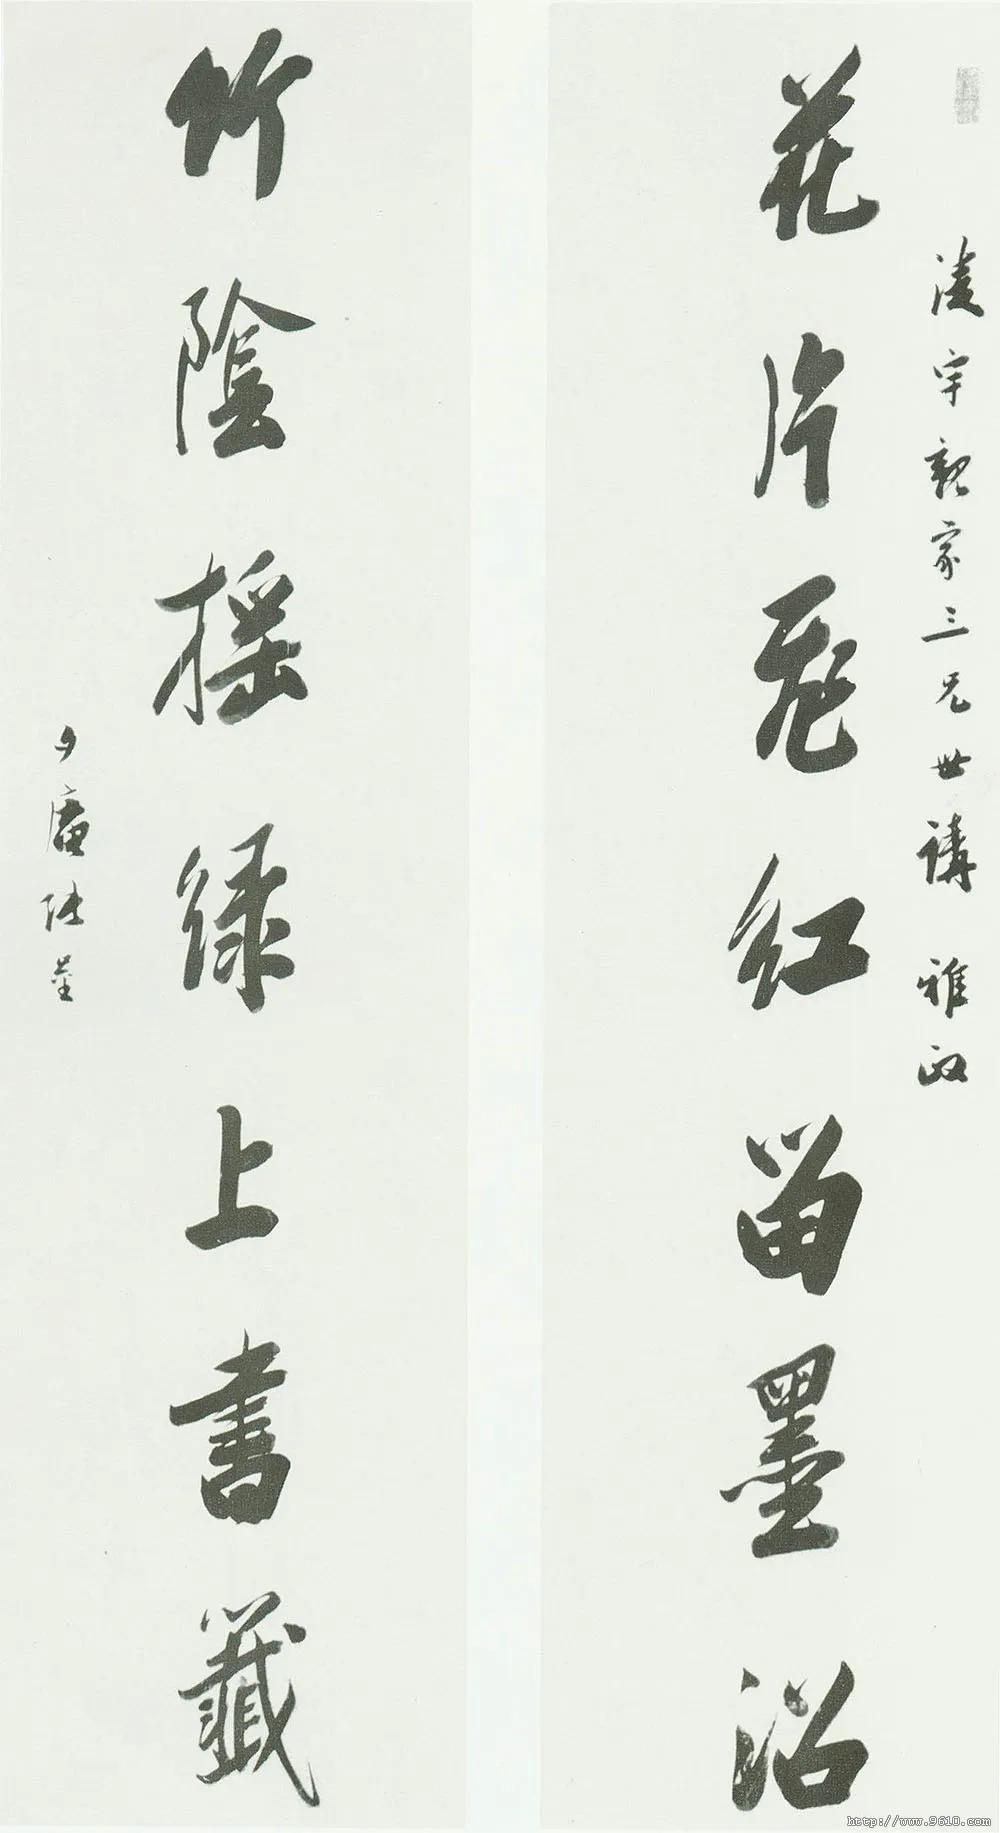 淩宇親家三兄世講 雅政
花片飛紅留墨沼
竹陰搖綠上書籤
夕庵張崟
http://www.9610.com